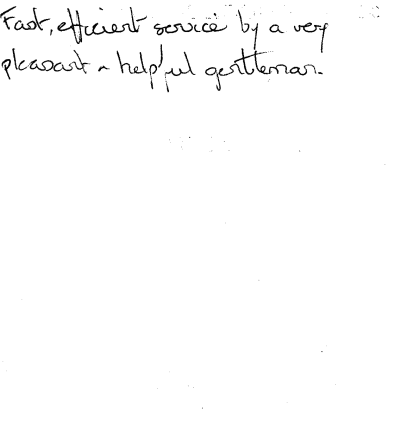 Fast, efficient service by a very
pleasant ~ helpful gentleman.